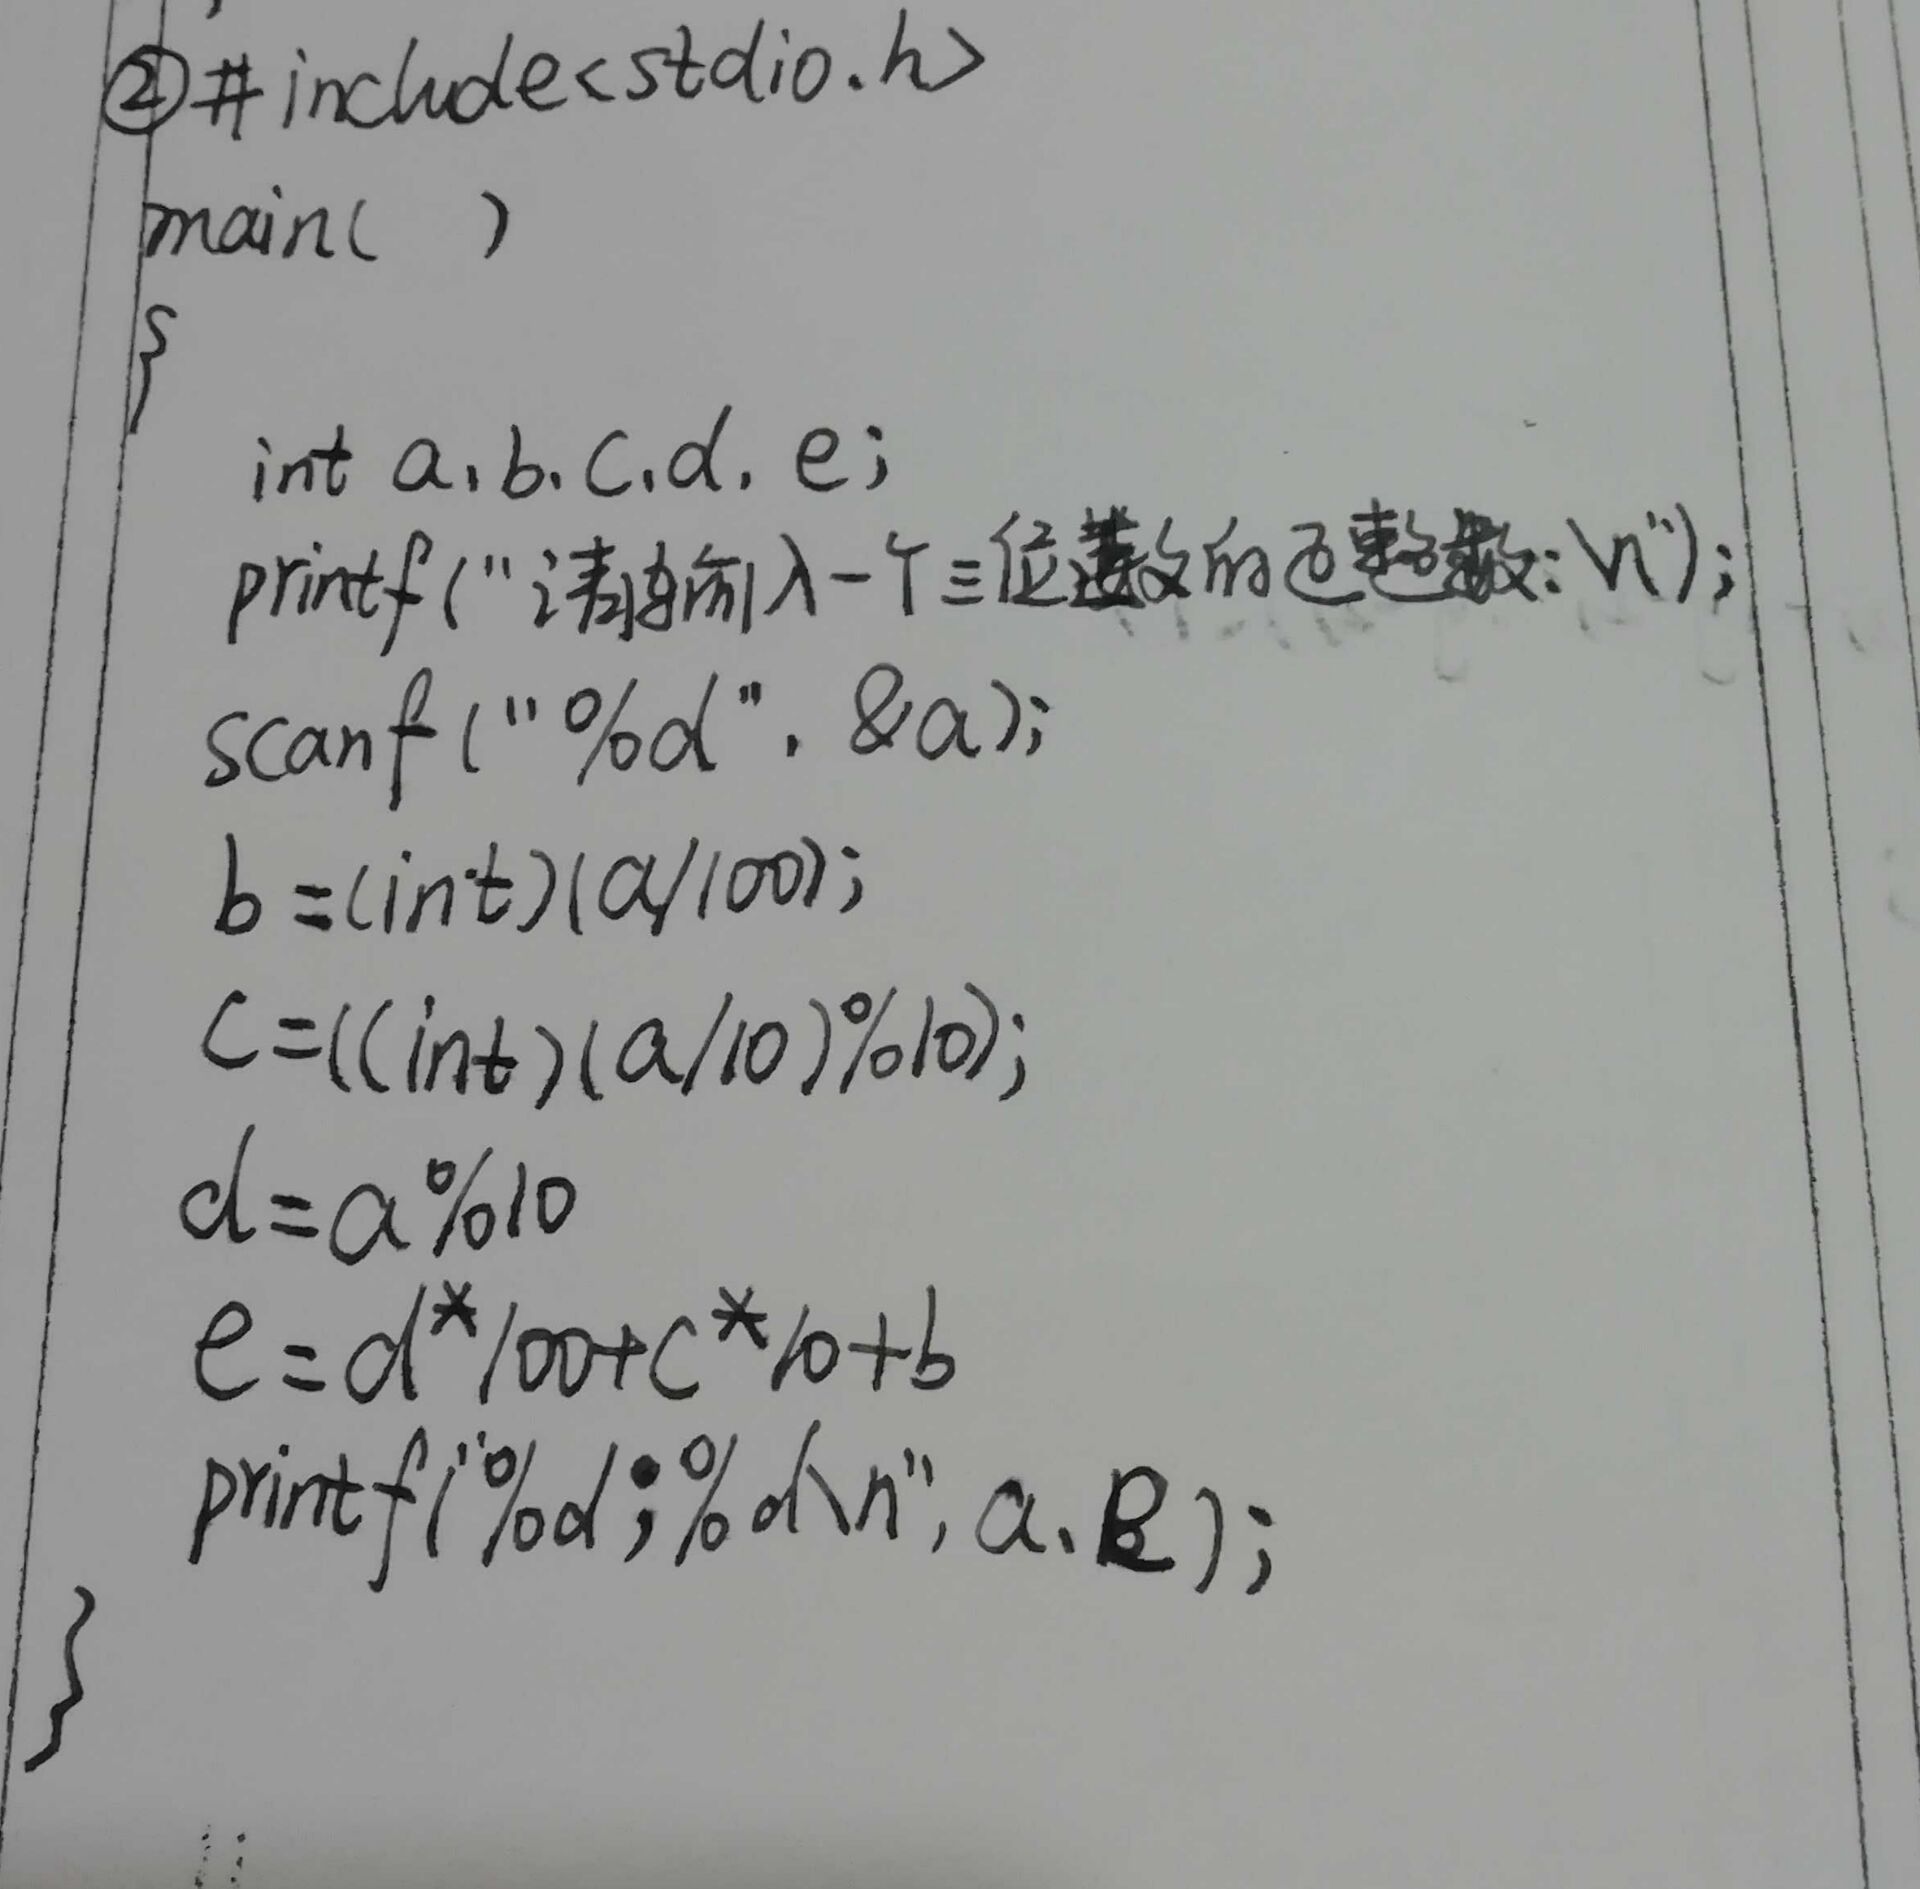 ②#include<stdio.h>
main( )
{
int a,b,c,d,e;
printf("请输入一个三位数的正整数:\n");
scanf("%d",&a);
b=(int)(a/100);
c=((int)(a/10)%10);
d=a%10
e=d*100+c*10+b
printf("%d;%d\n",a,e);
}